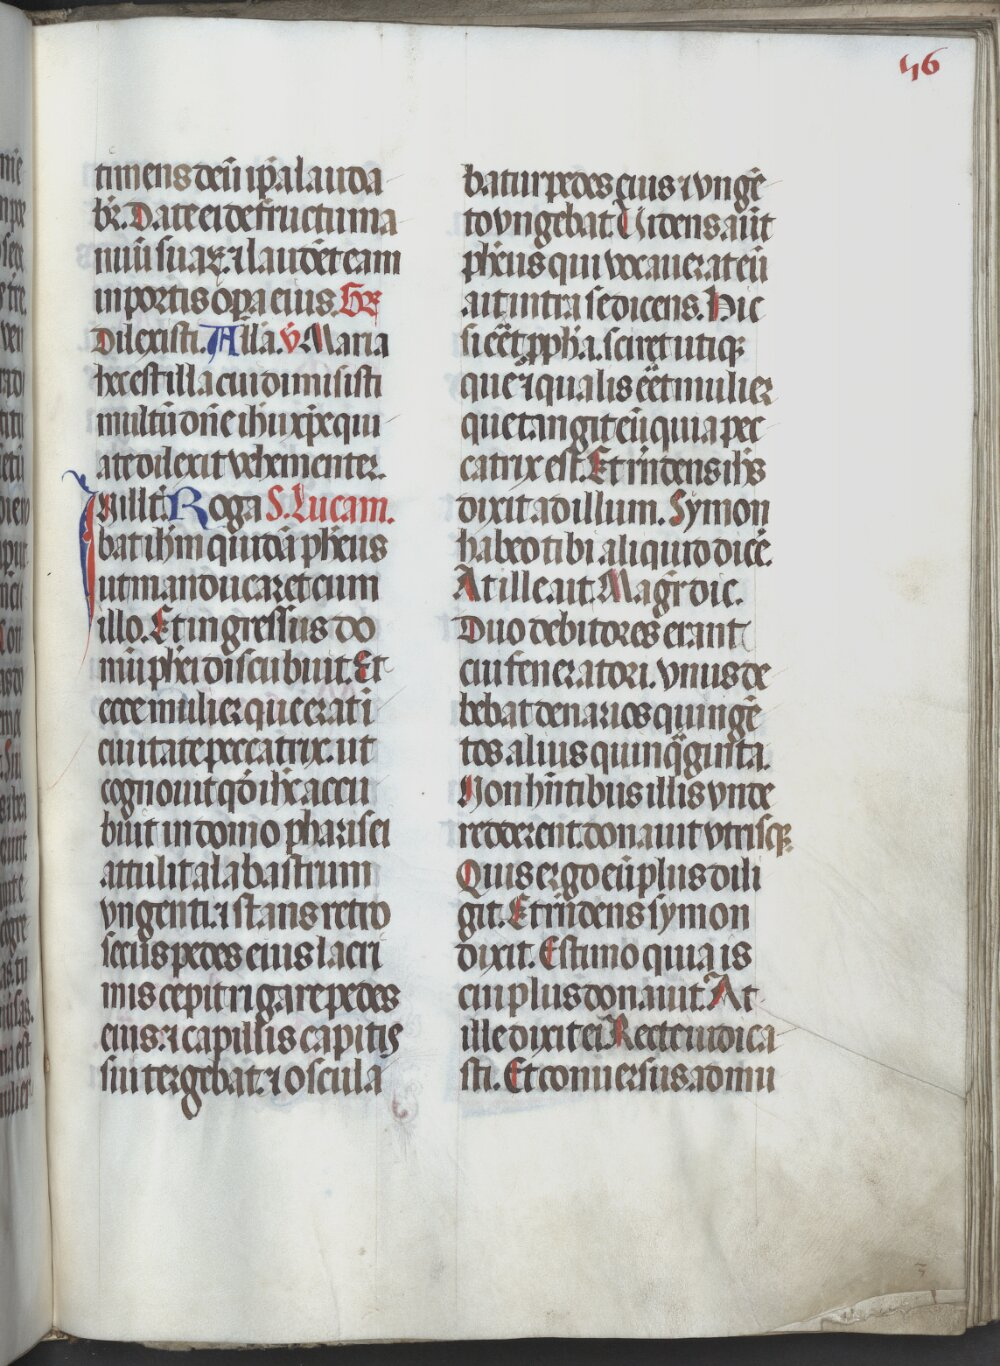 46
timens deū ip̄a lauda
br̄. Date ei de fructu ma
nuū suaꝝ ⁊ laudēt eam
in portis op̄a eius. Gr̄
Dilexisti. Alla. v̄ Maria
hec est illa cui dimisisti
multū dn̄e ihū xp̄e qui
a te dilexit vehementer.
In illt̄. Roga S. Lucam.
bat ihm̄ quidā phēus
ut manducaret cum
illo. Et ingressus do
mū phēi discubuit. Et
ecce mulier que erat ī
ciuitate peccatrix. ut
cognouit qd̄ ihc̄ accu
buit in domo pharisei
attulit alabastrum
vngenti. ⁊ stans retro
secus pedes eius lacri
mis cepit rigare pedes
eius. ⁊ capillis capitis
sui tergebat. ⁊ oscula
batur pedes eius ⁊ vngē
to vngebat Videns aūt
phēus qui vocauerat eū
ait intra se dicens. Hic
si eēt pph̄a. sciret utiqꝫ
que ⁊ qualis eēt mulier
que tangit eū quia pec
catrix est. Et rn̄dens ihs̄
dixit ad illum. Symon
habeo tibi aliquid dicē.
At ille ait. Magr̄ dic.
Duo debitores erant
cui feneratori. vnus de
bebat denarios quingē
tos alius quinq̄ginta.
Non hn̄tibus illis vnde
redderent. donauit vtrisqꝫ.
Quis ergo eū plus dili
git. Et rn̄dens symon
dixit. Estimo quia is
cui plus donauit. At
ille dixit ei Recte iudica
sti. Et conuersus ad mu